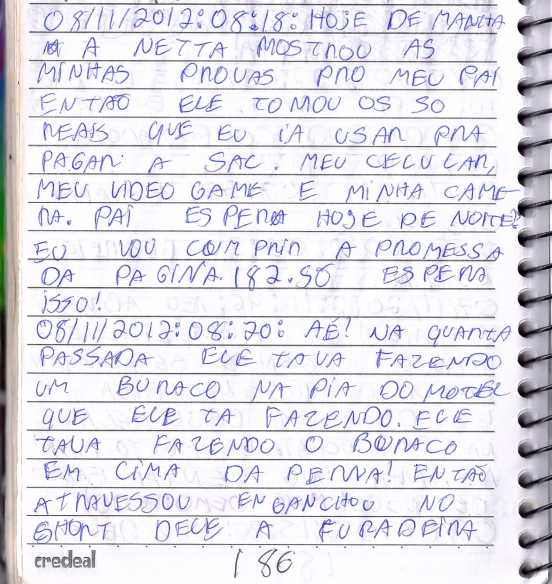 08/11/2012: 08:18: HOJE DE MANHÃ
A NETTA MOSTROU AS
MINHAS PROVAS PRO MEU PAI
ENTÃO ELE TOMOU OS 50
REAIS QUE EU IA USAR PRA
PAGAR A SAC. MEU CELULAR,
MEU VIDEO GAME E MINHA CAME-
RA. PAI ESPERA HOJE DE NOITE?
EU VOU COMPRIR A PROMESSA
DA PAGINA.182.SÓ ESPERA
ISSO!
08/11/2012: 08:20: AÉ! NA QUARTA
PASSADA ELE TAVA FAZENDO
UM BURACO NA PIA DO MOTEL
QUE ELE TA FAZENDO. ELE
TAVA FAZENDO O BURACO
EM CIMA DA PERNA! ENTÃO
ATRAVESSOU ENGANCHOU NO
SHORT DELE A FURADEIRA
credeal 186